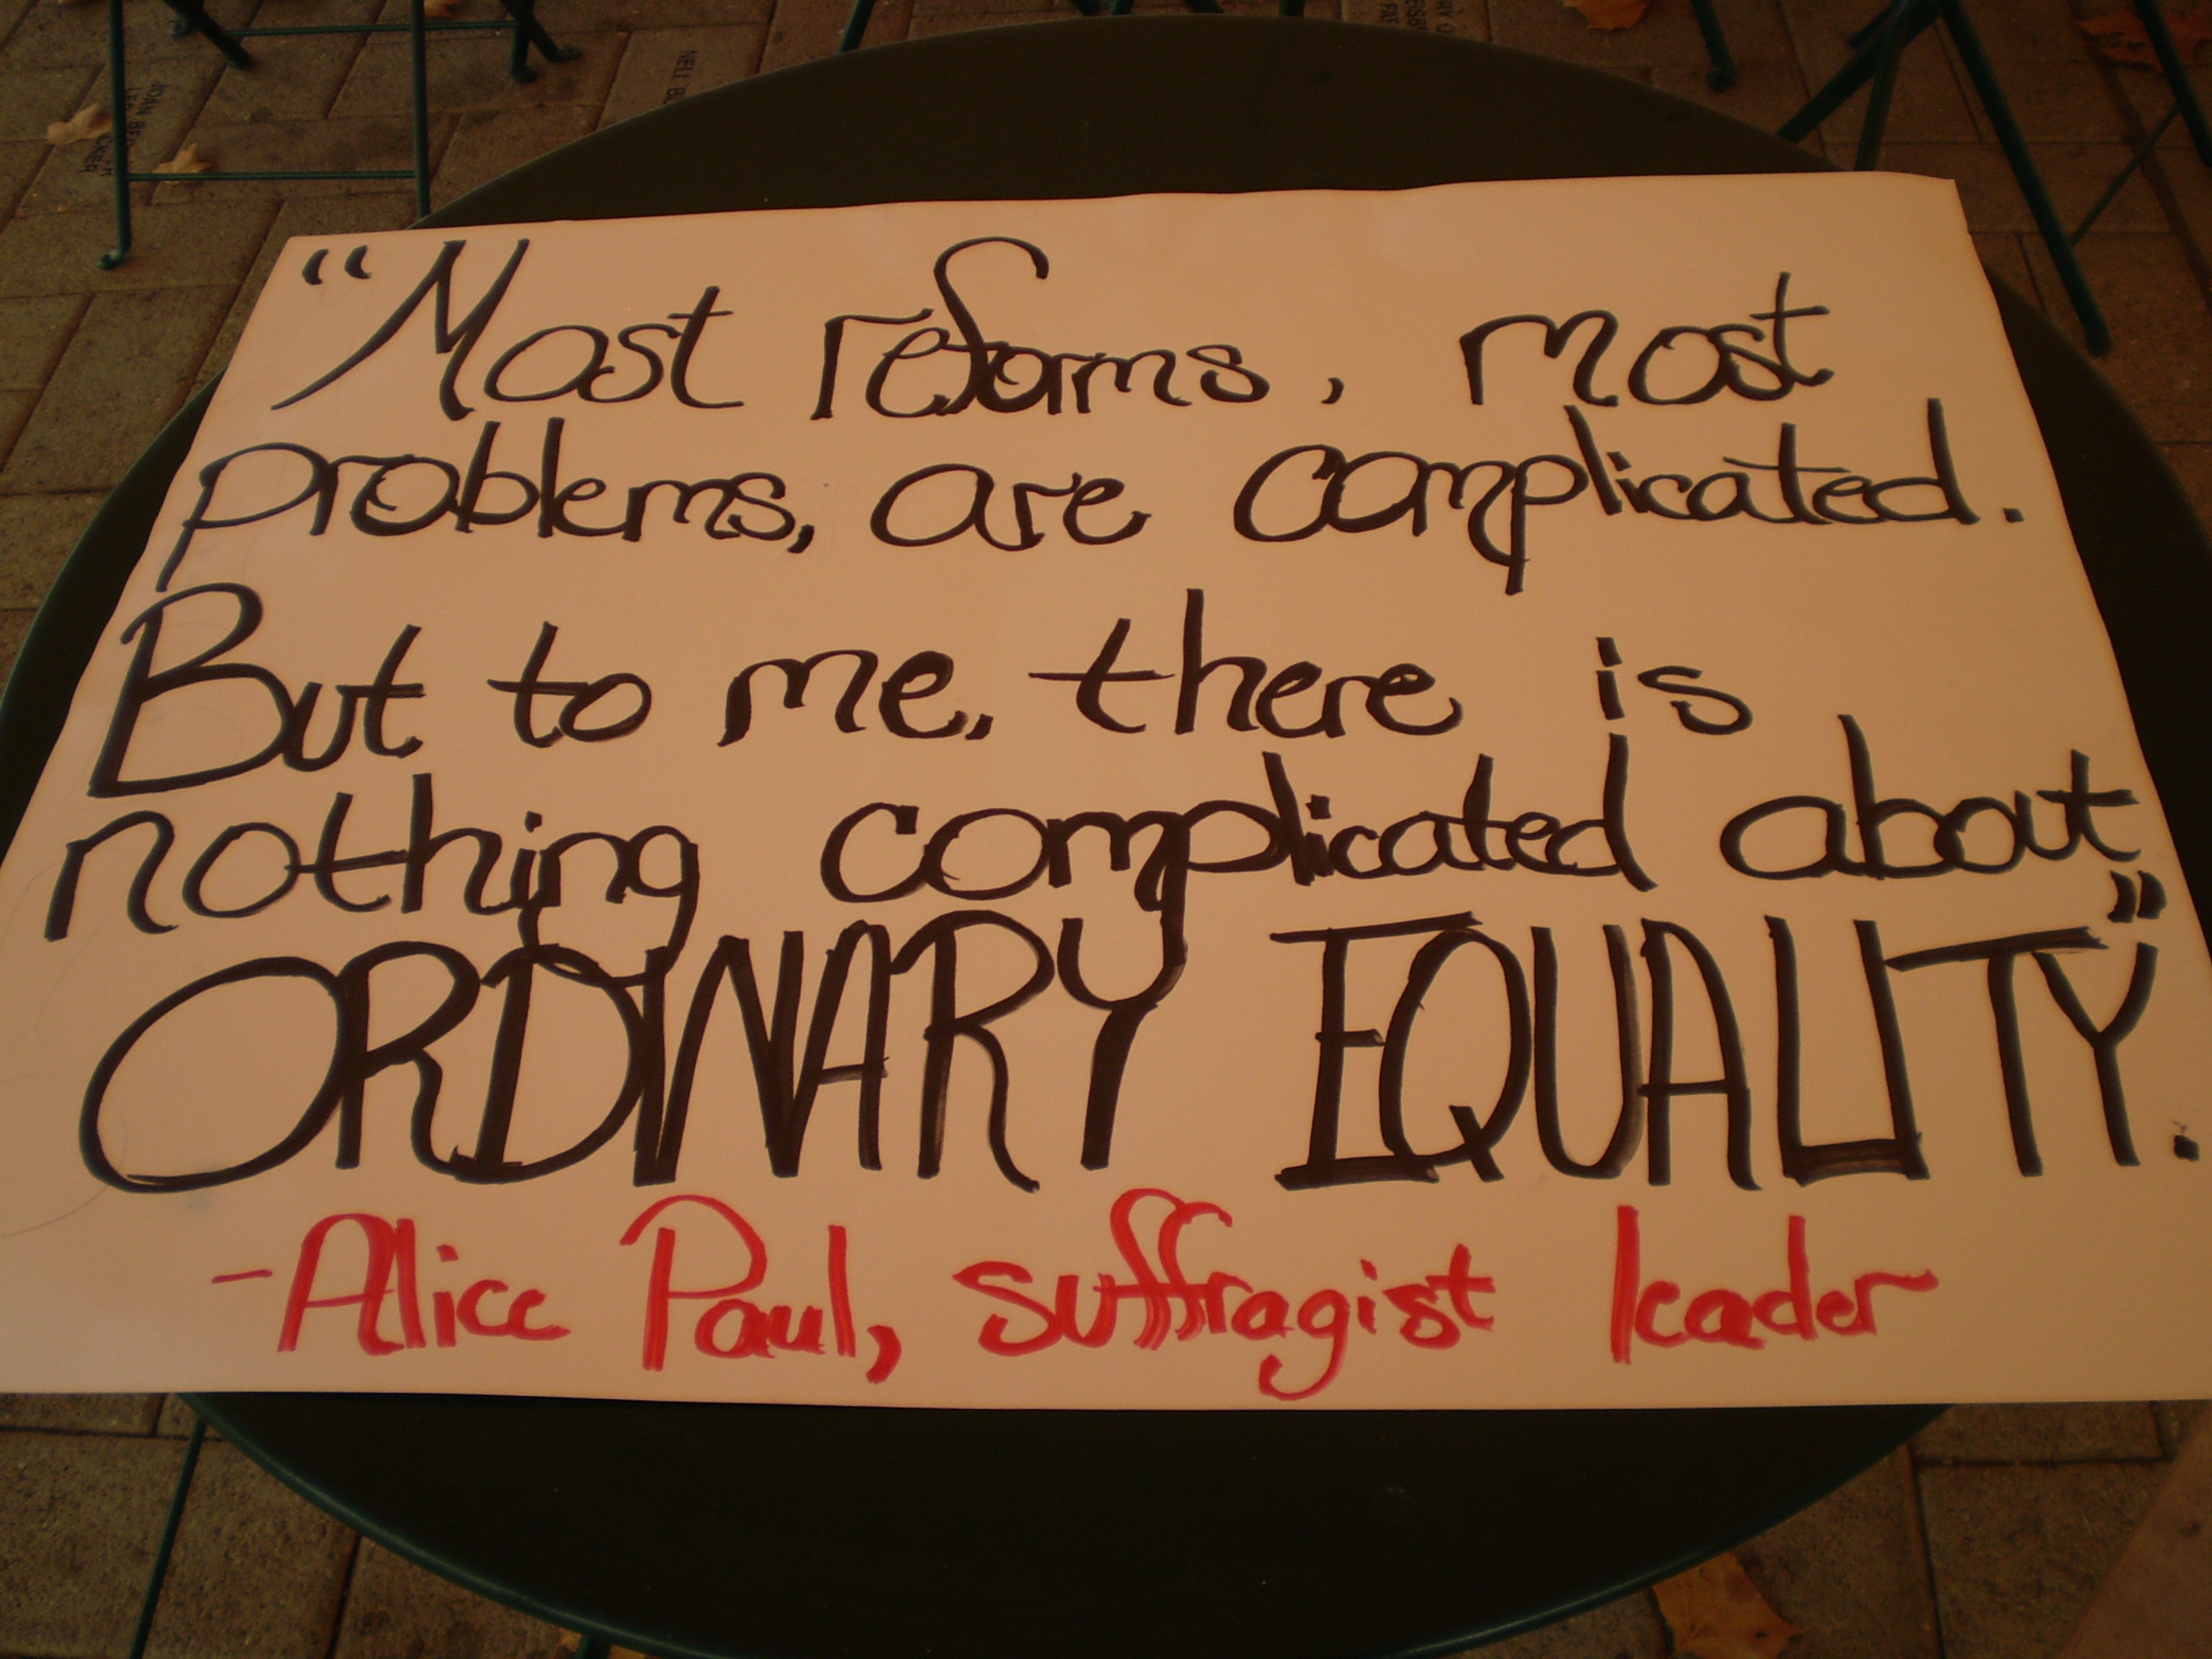 “Most reforms, most
problems, are complicated.
But to me, there is
nothing complicated about
ORDINARY EQUALITY.”
-Alice Paul, suffragist leader